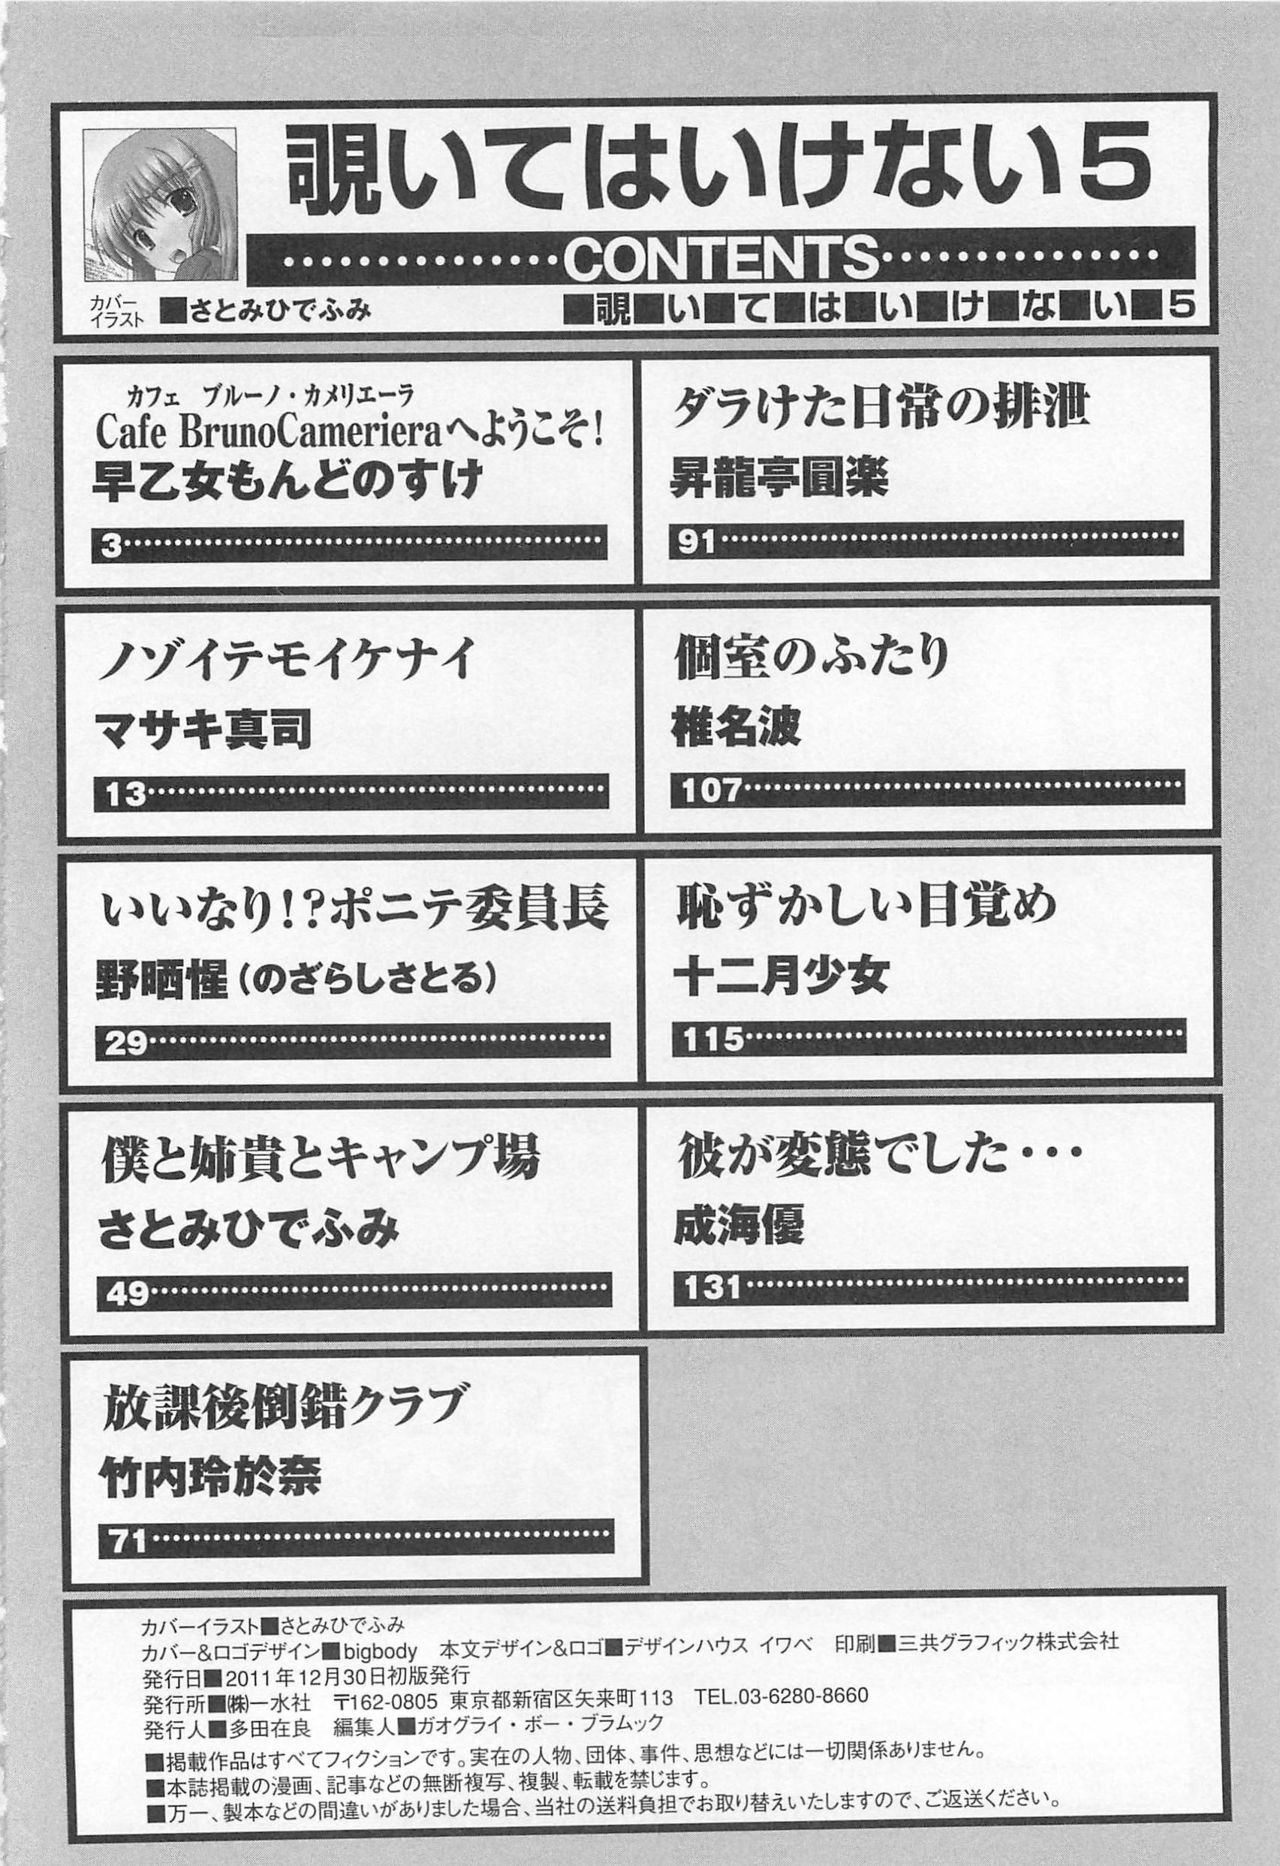 覗いてはいけない5
CONTENTS
カバー
イラスト ■さとみひでふみ
■覗■い■て■は■い■け■な■い■5
カフェ ブルーノ・カメリエーラ
Cafe BrunoCamerieraへようこそ！
早乙女もんどのすけ
3
ノゾイテモイケナイ
マサキ真司
13
いいなり！？ポニテ委員長
野晒惺（のざらしさとる）
29
僕と姉貴とキャンプ場
さとみひでふみ
49
放課後倒錯クラブ
竹内玲於奈
71
ダラけた日常の排泄
昇龍亭圓楽
91
個室のふたり
椎名波
107
恥ずかしい目覚め
十二月少女
115
彼が変態でした・・・
成海優
131
カバーイラスト■さとみひでふみ
カバー&ロゴデザイン■bigbody 本文デザイン&ロゴ■デザインハウス イワベ 印刷■三共グラフィック株式会社
発行日■2011年12月30日初版発行
発行所■㈱一水社 〒162-0805 東京都新宿区矢来町113 TEL.03-6280-8660
発行人■多田在良 編集人■ガオグライ・ボー・ブラムック
■掲載作品はすべてフィクションです。実在の人物、団体、事件、思想などには一切関係ありません。
■本誌掲載の漫画、記事などの無断複写、複製、転載を禁じます。
■万一、製本などの間違いがありました場合、当社の送料負担でお取り替えいたしますので、ご返送ください。